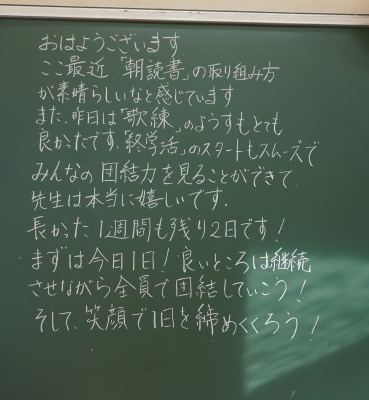 おはようございます
ここ最近「朝読書」の取り組み方
が素晴らしいなと感じています
また、昨日は「歌練」のようすもとても
良かったです。「終学活」のスタートもスムーズで
みんなの団結力を見ることができて、
先生は本当に嬉しいです。
長かった1週間も残り2日です!
まずは今日1日!良いところは継続
させながら全員で団結していこう!
そして、笑顔で1日を締めくくろう!